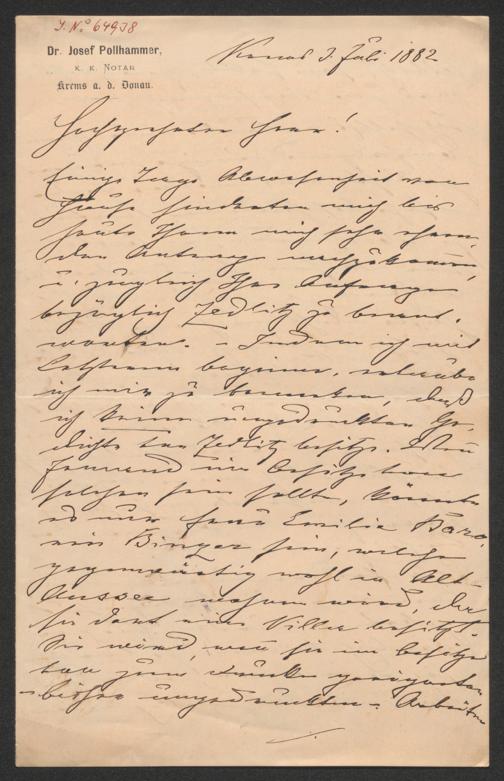 J. N. 64938
Dr. Josef Pollhammer,
K. K. Notar
Krems a. d. Donau.
Krems 3. Juli 1882
Hochgeehrter Herr!
Einige Tage Abwesenheit von
Hause hinderten mich bis
heute Ihrem mich sehr ehren-
den Antrag nachzukommen,
u. zugleich Ihre Anfrage
bezüglich Zedlitz zu beant-
worten. – Indem ich mit
Letzterem beginne, erlaube
ich mir zu bemerken, daß
ich keine ungedruckten Ge-
dichte von Zedlitz besitze. Wenn
Jemand im Besitze von
solchen sein sollte, könnte
es nur Frau Emilie Baro-
nin Binzer sein, welche
gegenwärtig wohl in Alt-
Aussee wohnen wird, da
sie dort eine Villa besitzt.
Sie wird, wenn sie im Besitze
von zum Drucke geeigneten
– bisher ungedruckten – Arbeiten